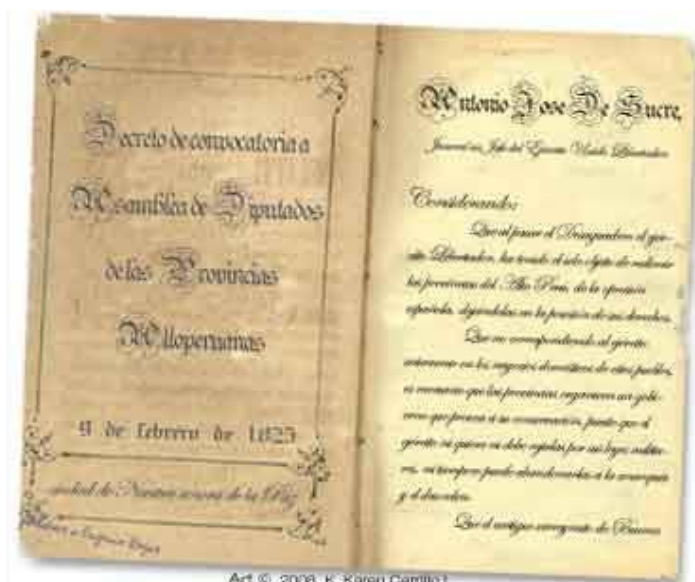 Decreto de convocatoria a
Asamblea de Diputados
de las Provincias
Altoperuanas
9 de febrero de 1825
ciudad de Nuestra señora de la Paz
Antonio Jose De Sucre,
General en Jefe del Ejercito Unido Libertador
Considerando:
Que al pasar el Desaguadero el ejer-
cito Libertador, ha tenido el solo objeto de redimir
las provincias del Alto Peru, de la opresion
española, dejandolas en la posesion de sus derechos.
Que no correspondiendo al ejercito
intervenir en los negocios domesticos de estos pueblos,
es necesario que las provincias organicen un gobi-
erno que provea a su conservacion, puesto que el
ejercito ni quiere ni debe regirlas por sus leyes milita-
res, ni tampoco puede abandonarlas a la anarquia
y el desorden.
Que el antiguo virreynato de Buenos
Art © 2008 K. Karen Carrillo